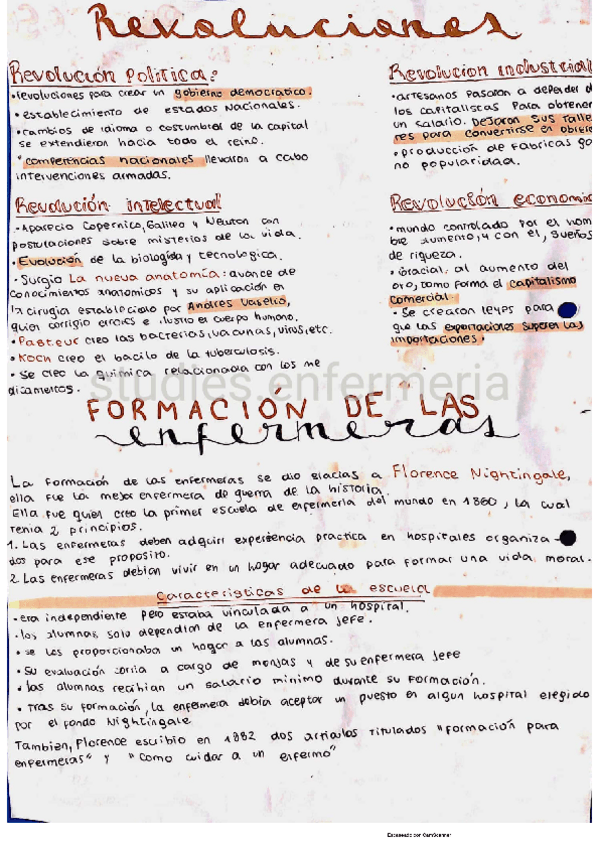 Revoluciones
Revolución Política:
• revoluciones para crear un gobierno democratico.
• establecimiento de estados nacionales.
• cambios de idioma o costumbres de la capital
se extendieron hacia todo el reino.
• competencias nacionales llevaron a cabo
intervenciones armadas.
Revolución intelectual
• Aparecio Copernico, Galileo y Newton con
postulaciones sobre misterios de la vida.
• Evolución de la biologista y tecnologica.
• Surgio La nueva anatomía: avance de
conocimientos anatomicos y su aplicación en
la cirugia establecido por Andres Vaselio,
quien corrigio errores e ilustro el cuerpo humano.
• Pasteur creo las bacterias, vacunas, virus, etc.
• Koch creo el bacilo de la tuberculosis.
• Se creo la quimica relacionada con los me
dicamentos.
Revolucion industrial
• artesanos pasaron a depender d
los capitalistas para obtener
un salario. Dejaron sus talle
res para convertirse en obrero
• produccion de fabricas ga
no popularidad.
Revolución economic
• mundo controlado por el hom
bre aumento, y con el, sueños
de riqueza.
• Gracial al aumento del
oro, como forma el capitalismo
comercial.
• Se crearon leyes para
que las exportaciones superen las
importaciones.
studies.enfermeria
FORMACIÓN DE LAS
enfermeras
La formación de las enfermeras se dio gracias a Florence Nightingale,
ella fue la mejor enfermera de guerra de la historia.
Ella fue quien creo la primer escuela de enfermeria del mundo en 1860, la cual
tenia 2 principios.
1. Las enfermeras deben adquirir experiencia practica en hospitales organiza-
dos para ese proposito.
2. Las enfermeras debian vivir en un hogar adecuado para formar una vida moral.
Caracteristicas de la escuela
• era independiente pero estaba vinculada a un hospital.
• los alumnas, solo dependian de la enfermera jefe.
• se les proporcionaba un hogar a las alumnas.
• Su evaluación corria a cargo de monjas y de su enfermera jefe
• las alumnas recibian un salario minimo durante su formación.
• Tras su formación, la enfermera debia aceptar un puesto en algun hospital elegido
por el fondo Nightingale
Tambien, Florence escribio en 1882 dos articulos titulados "Formación para
enfermeras" y "Como cuidar a un enfermo"
Escaneado con CamScanner